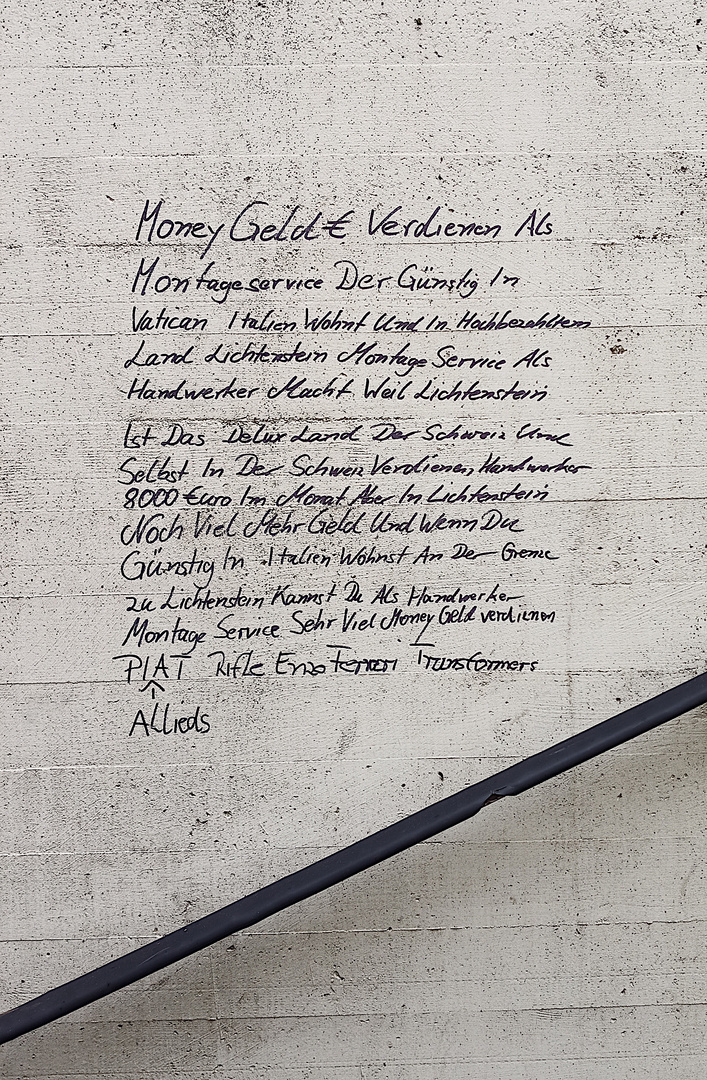 Money Geld € Verdienen Als
Montageservice Der Günstig In
Vatican Italien Wohnt Und In Hochbezahltem
Land Lichtenstein Montage Service Als
Handwerker Macht Weil Lichtenstein
Ist Das Delux Land Der Schweiz Und
Selbst In Der Schweiz Verdienen, Handwerker
8000 €uro Im Monat Aber In Lichtenstein
Noch Viel Mehr Geld Und Wenn Du
Günstig In Italien Wohnst An Der Grenze
zu Lichtenstein Kannst Du Als Handwerker
Montage Service Sehr Viel Money Geld verdienen
PIAT Rifle Enzo Ferrari Transformers
↑
Allieds